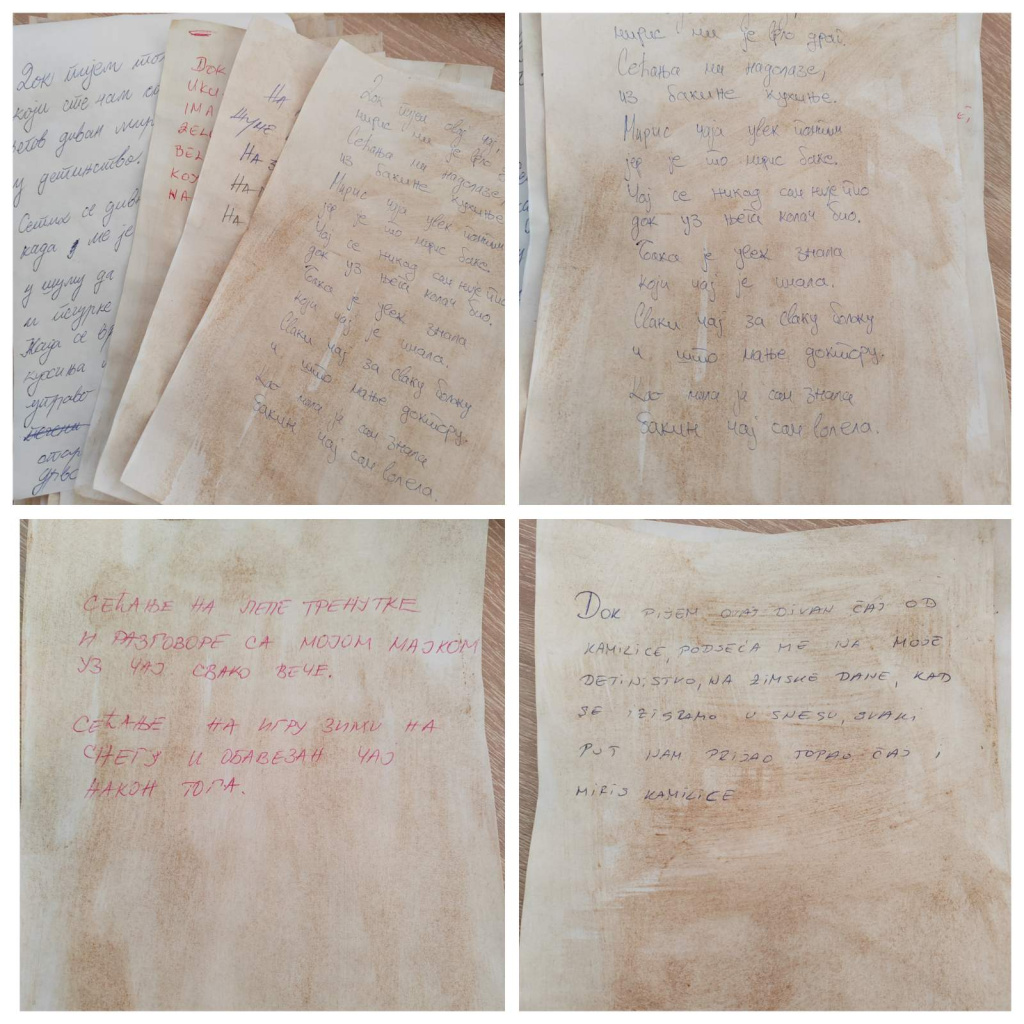 Док пијем
који сте нам
диван
у детињство.
Сетих се
када ме је
у шуму да
и
Када се
кухиња
управо
Док
UKU
IMA
ŽEL
BEL
KOJ
NA
На
На
На
На
Док пијем овај чај,
мирис ми је врло
Сећања ми надолазе,
из бакине кухиње
Мирис чаја увек памтим
јер је то мирис баке.
Чај се никад сам није пио
док уз њега колач био.
Бака је увек знала
који чај је имала.
Сваки чај за сваку бољку
и што мање доктору.
Као мала ја сам знала
Бакин чај сам волела.
мирис ми је врло драг.
Сећања ми надолазе,
уз бакине кухиње.
Мирис чаја увек памтим
јер је то мирис баке.
Чај се никад сам није пио
док уз њега колач био.
Бака је увек знала
који чај је имала.
Сваки чај за сваку бољку
и што мање доктору.
Као мала ја сам знала
Бакин чај сам волела.
СЕЋАЊЕ НА ЛЕПЕ ТРЕНУТКЕ
И РАЗГОВОРЕ СА МОЈОМ МАЈКОМ
УЗ ЧАЈ СВАКО ВЕЧЕ.
СЕЋАЊЕ НА ИГРУ ЗИМИ НА
СНЕГУ И ОБАВЕЗАН ЧАЈ
НАКОН ТОГА.
DOK PIJEM OVAJ DIVAN ČAJ OD
KAMILICE, PODSJEĆA ME NA MOJE
DETINJSTKO, NA ZIMSKE DANE, KAD
SE IZIGRAMO U SNEGU, SVAKI
PUT NAM PRIJAO TOPAO ČAJ I
MIRIS KAMILICE